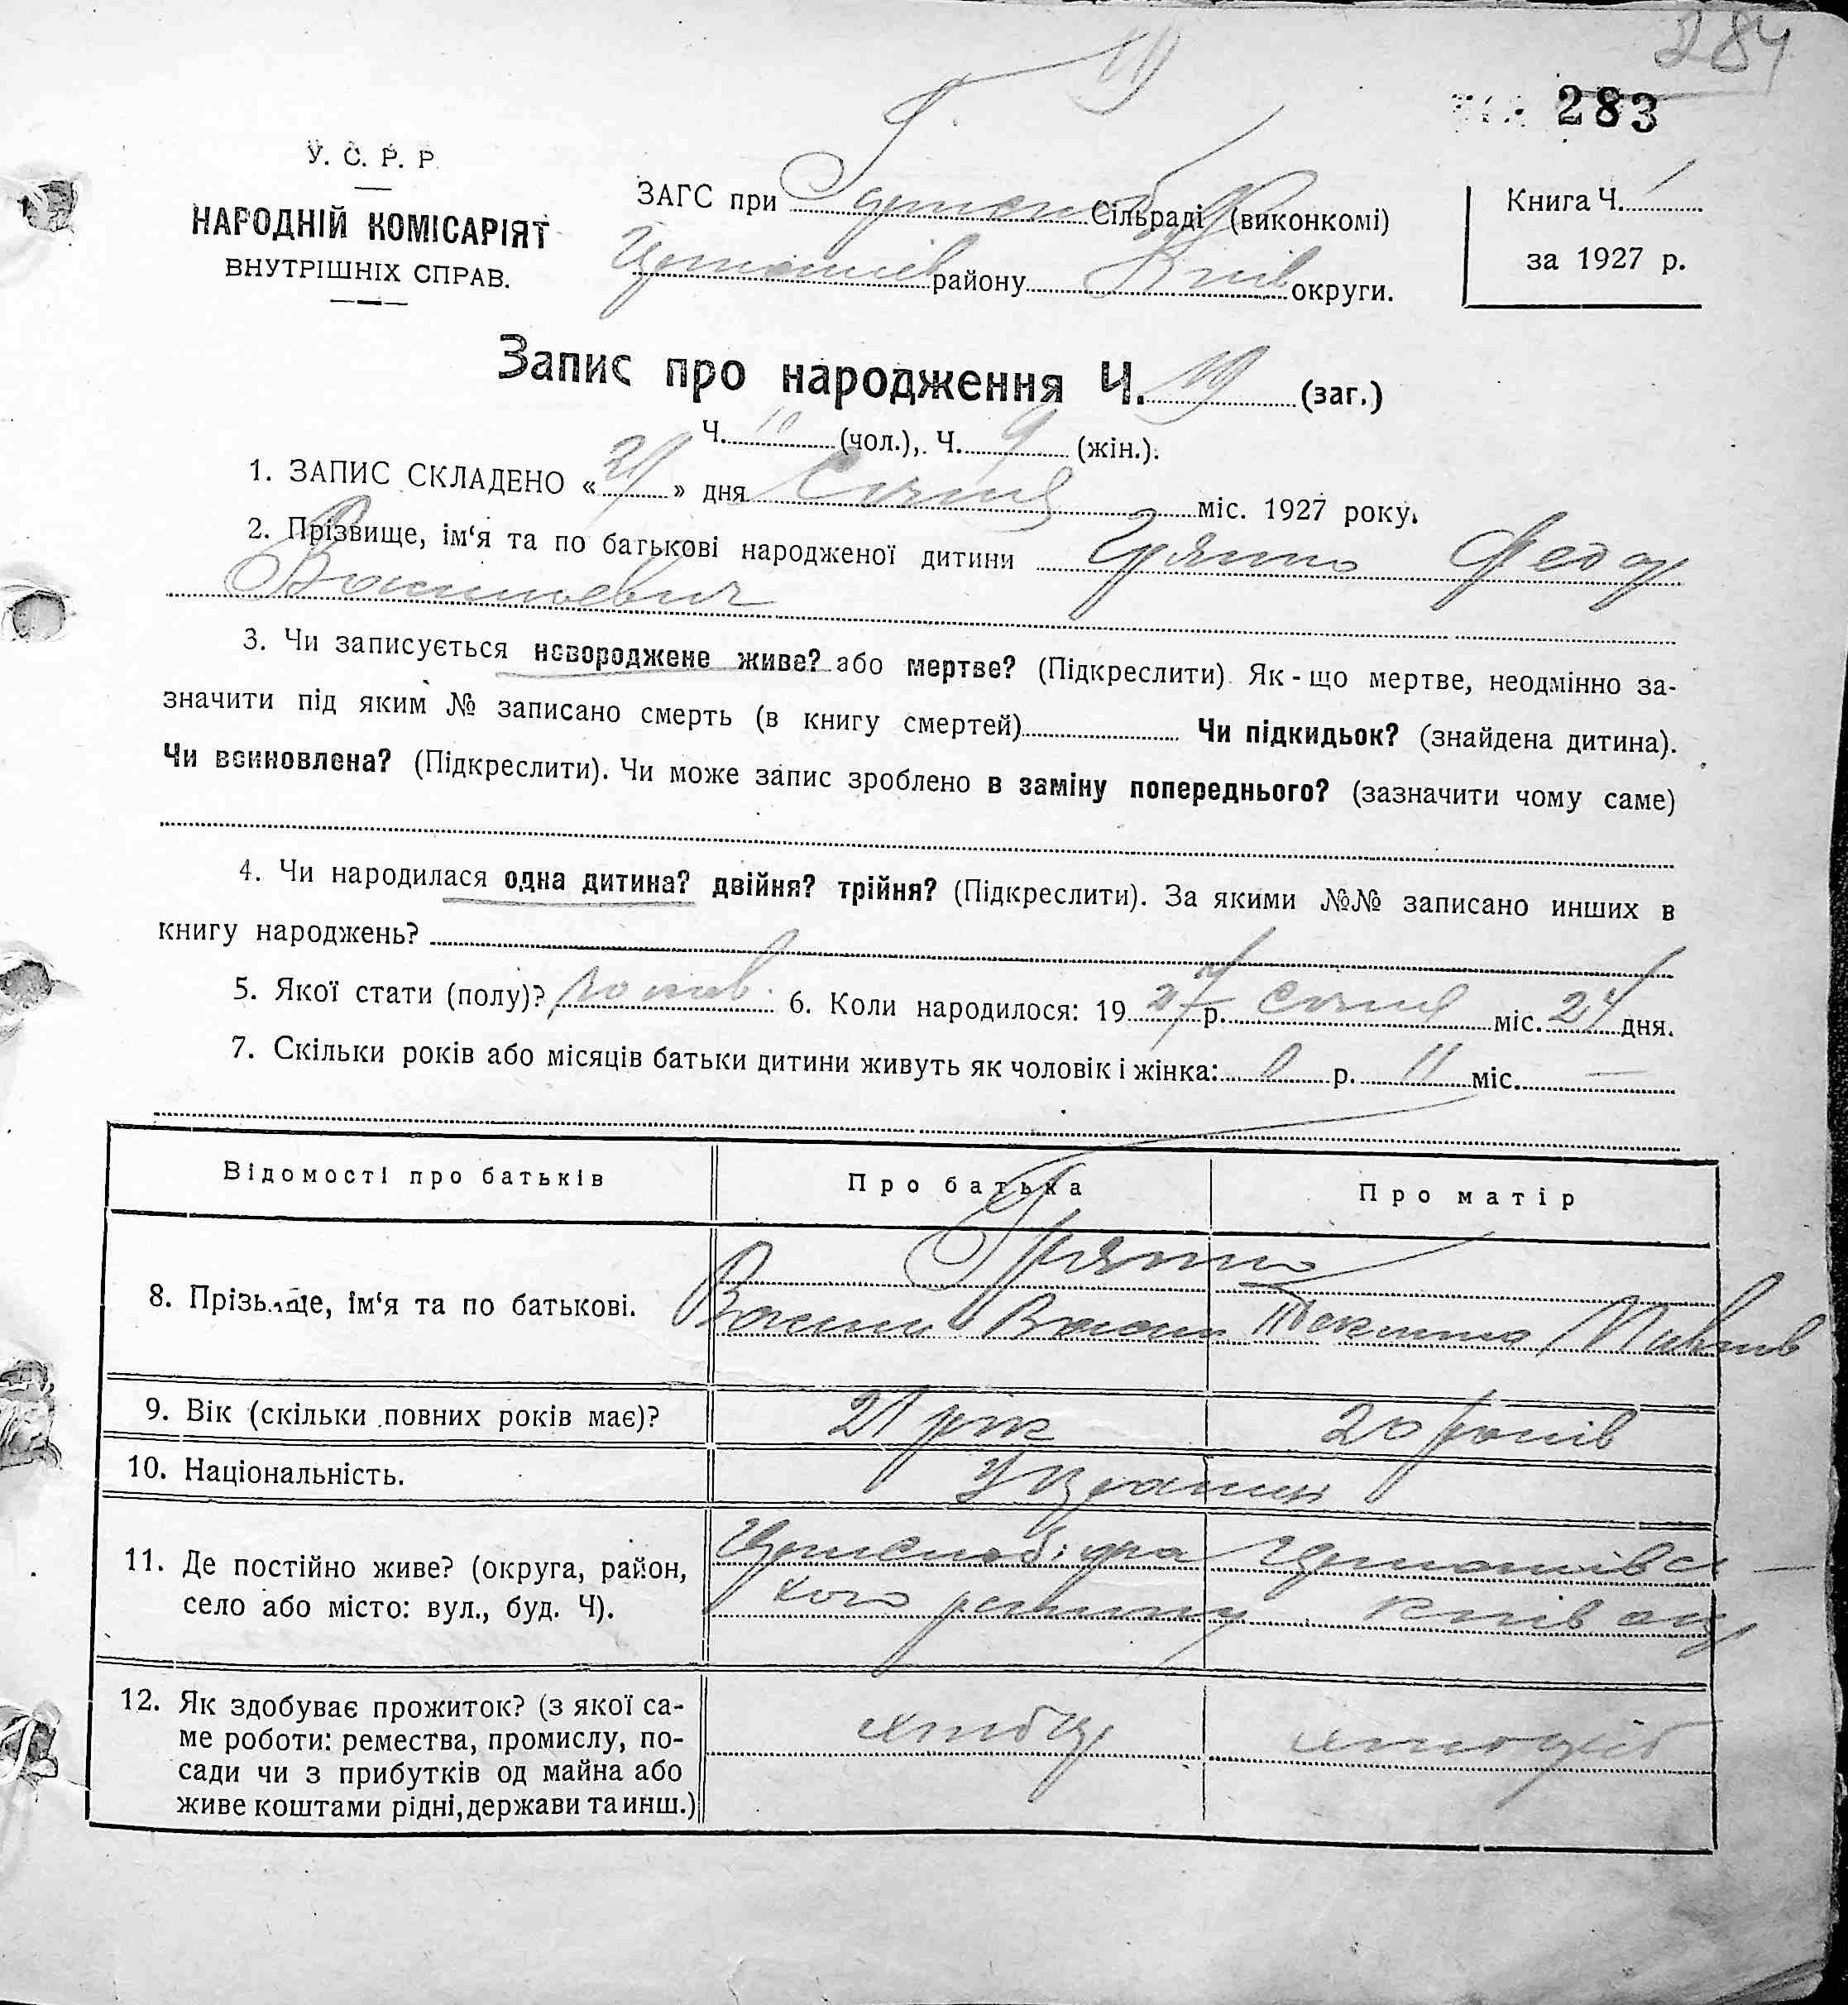 284
283
19
У. С. Р. Р.
НАРОДНІЙ КОМІСАРІЯТ
ВНУТРІШНІХ СПРАВ.
ЗАГС при Сільраді (виконкомі)
району Київ округи.
Книга Ч. 1
за 1927 р.
Запис про народження Ч. 19 (заг.)
Ч. 10 (чол.), Ч. 9 (жін.).
1. ЗАПИС СКЛАДЕНО « » дня Січня міс. 1927 року.
2. Прізвище, ім‘я та по батькові народженої дитини Федор
Васильевич
3. Чи записується новороджене живе? або мертве? (Підкреслити). Як-що мертве, неодмінно за-
значити під яким № записано смерть (в книгу смертей) Чи підкидьок? (знайдена дитина).
Чи всиновлена? (Підкреслити). Чи може запис зроблено в заміну попереднього? (зазначити чому саме)
4. Чи народилася одна дитина? двійня? трійня? (Підкреслити). За якими №№ записано инших в
книгу народжень?
5. Якої стати (полу)? 6. Коли народилося: 19 27 р. Січня міс. 24 дня.
7. Скільки років або місяців батьки дитини живуть як чоловік і жінка: 0 р. 11 міс. —
Відомості про батьків
Про батька
Про матір
8. Прізвище, ім‘я та по батькові.
Васил Васил
9. Вік (скільки повних років має)?
21 рік
20 років
10. Національність.
Україн
11. Де постійно живе? (округа, район,
село або місто: вул., буд. Ч).
кого району київ окр
12. Як здобуває прожиток? (з якої са-
ме роботи: ремества, промислу, по-
сади чи з прибутків од майна або
живе коштами рідні, держави та инш.)